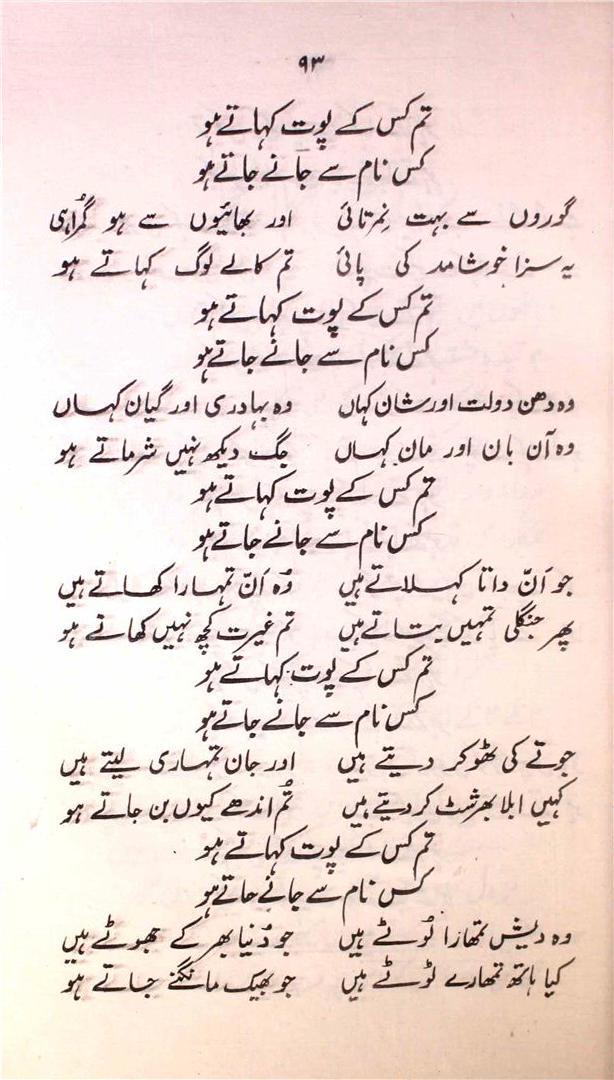 ۹۳
تم کس کے پوت کہاتے ہو
کس نام سے جانے جاتے ہو
گوروں سے بہت نِمرتائی اور بھائیوں سے ہو گُمراہی
یہ سزا خوشامد کی پائی تم کالے لوگ کہاتے ہو
تم کس کے پوت کہاتے ہو
کس نام سے جانے جاتے ہو
وہ دھن دولت اور شان کہاں وہ بہادری اور گیان کہاں
وہ آن بان اور مان کہاں جگ دیکھ نہیں شرماتے ہو
تم کس کے پوت کہاتے ہو
کس نام سے جانے جاتے ہو
جو اَنّ داتا کہلاتے ہیں وُہ اَنّ تمہارا کھاتے ہیں
پھر جنگلی تمہیں بتاتے ہیں تم غیرت کچھ نہیں کھاتے ہو
تم کس کے پوت کہاتے ہو
کس نام سے جانے جاتے ہو
جوتے کی ٹھوکر دیتے ہیں اور جان تمہاری لیتے ہیں
کہیں ابلا بھرشٹ کر دیتے ہیں تُم اندھے کیوں بن جاتے ہو
تم کس کے پوت کہاتے ہو
کس نام سے جانے جاتے ہو
وہ دیش تمھارا لُوٹے ہیں جو دُنیا بھر کے جھوٹے ہیں
کیا ہاتھ تمھارے ٹوٹے ہیں جو بھیک مانگنے جاتے ہو